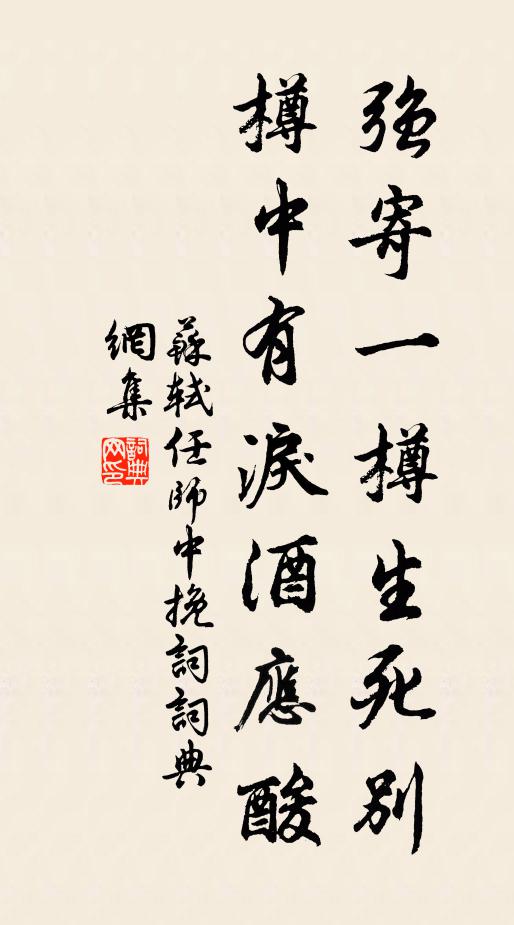 強寄一樽生死別
樽中有淚酒應酸
蘇軾任師中挽詞詞典
網集
詞典
网印